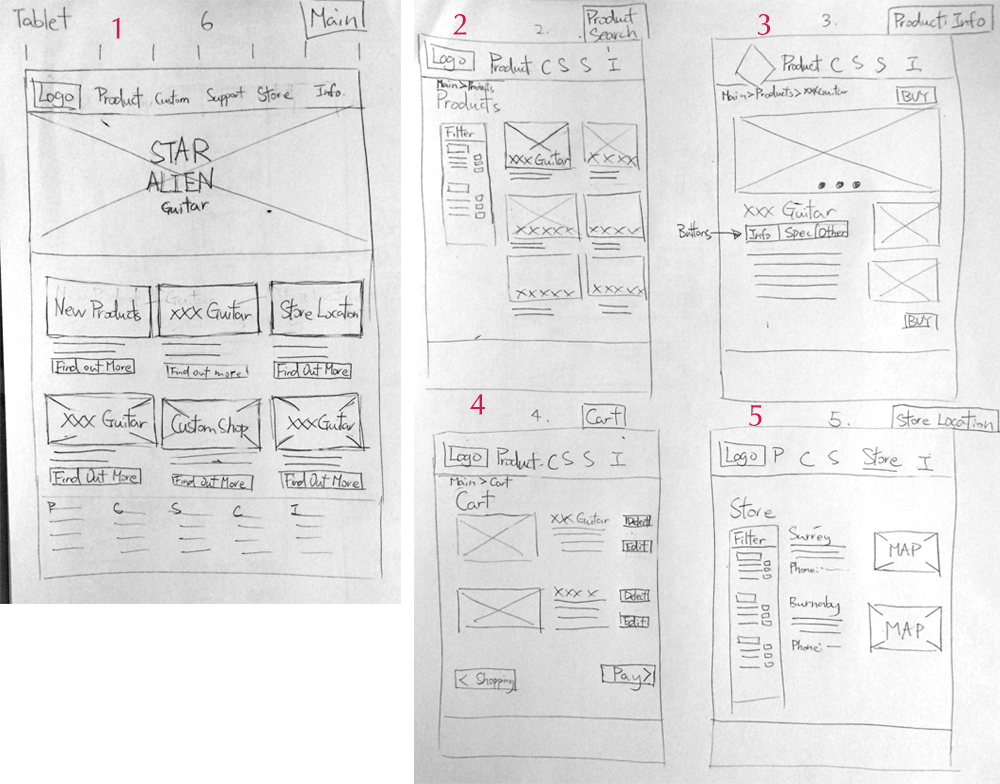 Tablet 1 6 Main
Logo Product Custom Support Store Info.
STAR
ALIEN
Guitar
New Products xxx Guitar Store Location
Find out More Find out more Find Out More
xxx Guitar Custom Shop xxx Guitar
Find Out More Find Out More Find Out More
P C S C I
2 2. Product
Search
Logo Product C S S I
Main > Products
Products
Filter
xxx Guitar xxxx
xxxxx xxxx
xxxxx xxxxx
3 3. Product Info
Product C S S I
Main > Products > xxx Guitar BUY
xxx Guitar
Buttons Info Spec Other
BUY
4 4. Cart
Logo Product C S S I
Main > Cart
Cart
xxx Guitar
Edit
xxx x
Edit
< Shopping Pay >
5 5. Store Location
Logo P C S Store I
Store
Filter Surrey
MAP
Phone:
Burnaby
MAP
Phone: